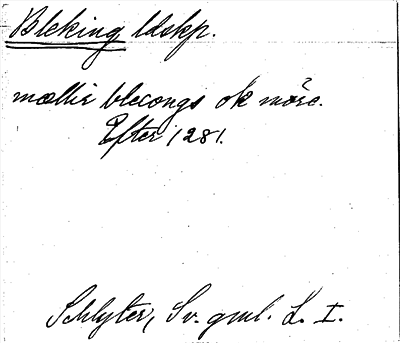 Bleking ldskp.
mællir blecongs ok möre.
Efter 1281.
Schlyter, Sv. gml. L. I.